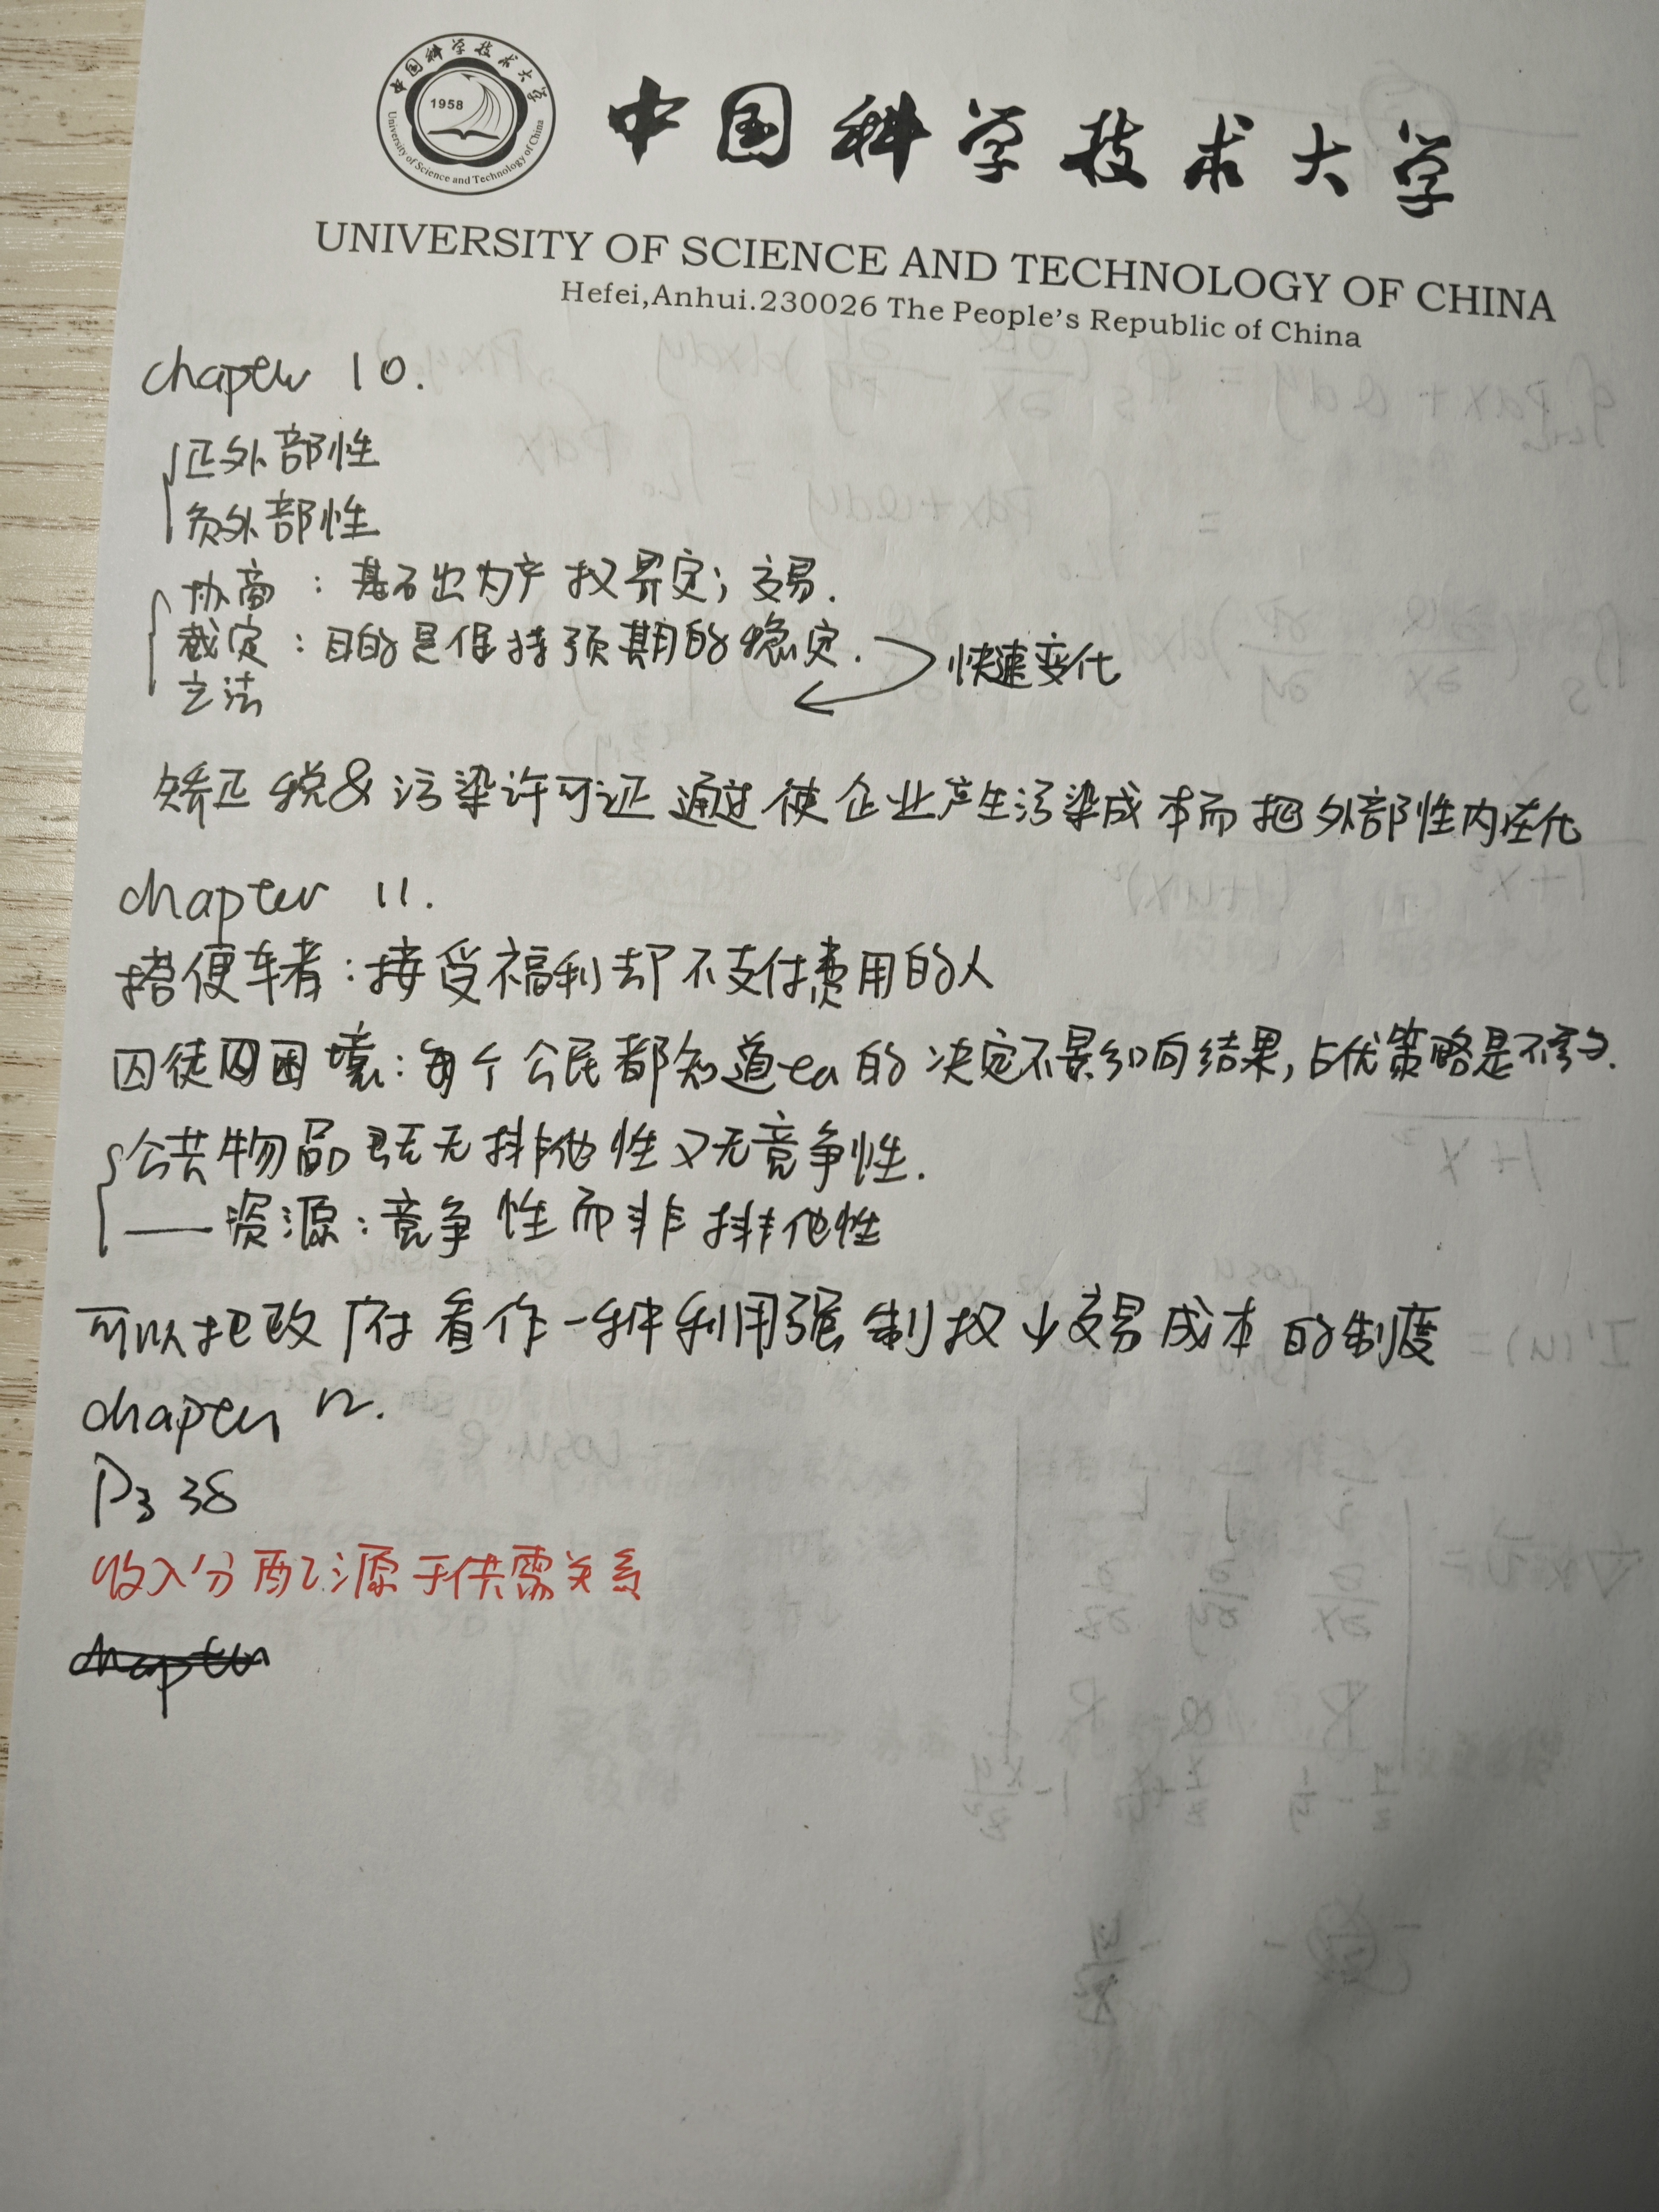 中国科学技术大学
1958
University of Science and Technology of China
中国科学技术大学
UNIVERSITY OF SCIENCE AND TECHNOLOGY OF CHINA
Hefei,Anhui.230026 The People's Republic of China
chapter 10.
正外部性
负外部性
协商：基础为产权界定；交易.
裁定：目的是保持预期的稳定.
快速变化
立法
矫正税&污染许可证通过使企业产生污染成本而把外部性内在化
chapter 11.
搭便车者：接受福利却不支付费用的人
囚徒困境：每个公民都知道ta的决定不影响结果，占优策略是不参与.
公共物品既无排他性又无竞争性.
——资源：竞争性而非排他性
可以把政府看作一种利用强制权↓交易成本的制度
chapter 12.
P338
收入分配源于供需关系
chapter